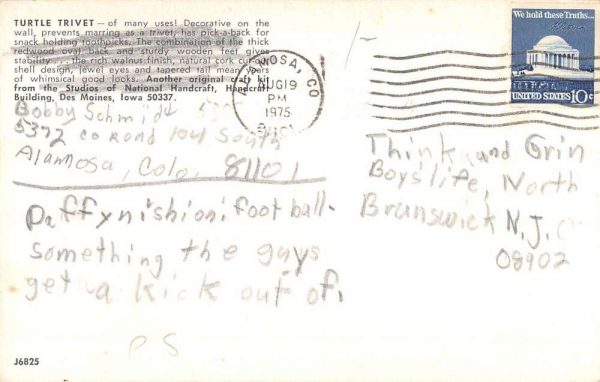 TURTLE TRIVET — of many uses! Decorative on the
wall, prevents marring as a trivet, has pick-a-back for
snack holding toothpicks. The combination of the thick
redwood oval back and sturdy wooden feet gives
stability . . . the rich walnut finish, natural cork cut-out
shell design, jewel eyes and tapered tail mean years
of whimsical good looks. Another original craft kit
from the Studios of National Handcraft, Handcraft
Building, Des Moines, Iowa 50337.
Bobby Schmidt
5372 Co Road 104 South
Alamosa, Colo, 81101
Daffynishion: foot ball-
something the guys
get a kick out of.
PS
J6825
ALAMOSA, CO
AUG19
PM
1975
81101
We hold these Truths...
UNITED STATES 10c
Think and Grin
Boys life, North
Brunswick N.J.
08902